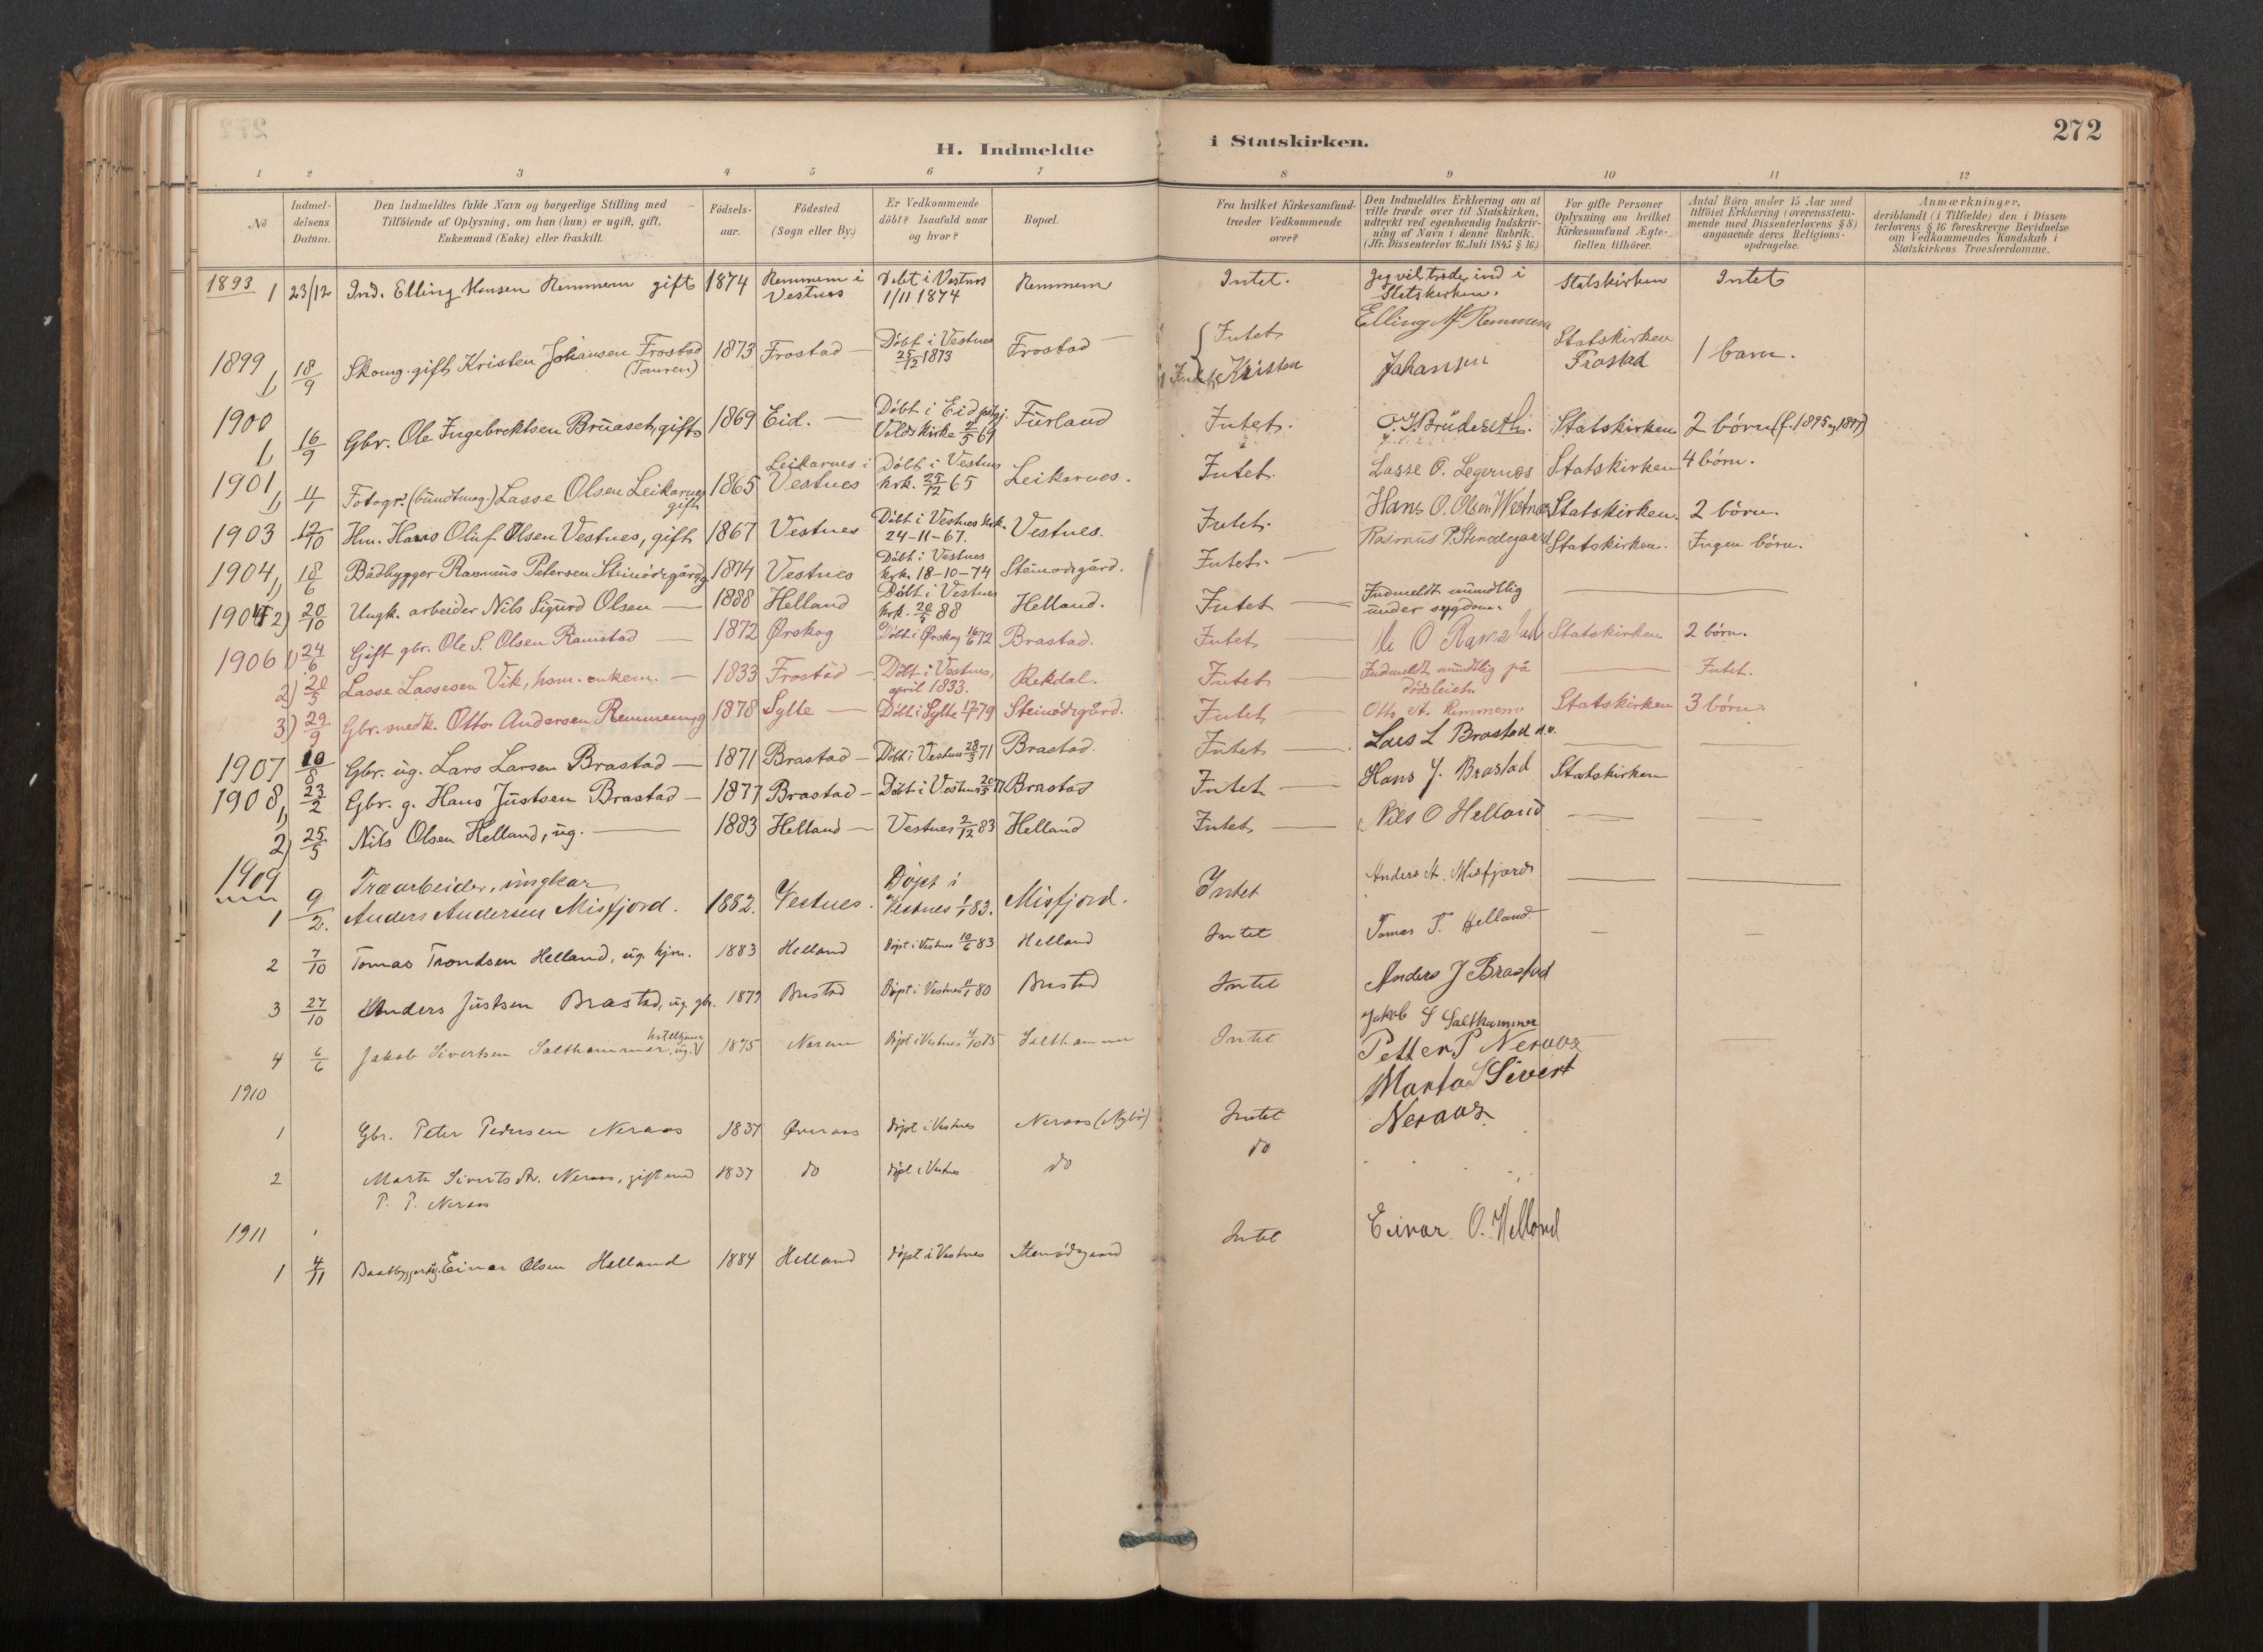 272
H. Indmeldte i Statskirken.
1 2 3 4 5 6 7 8 9 10 11 12
No
Indmel-
delsens
Datum.
Den Indmeldtes fulde Navn og borgerlige Stilling med
Tilföiende af Oplysning, om han (hun) er ugift, gift,
Enkemand (Enke) eller fraskilt.
Födsels-
aar.
Födested
(Sogn eller By.)
Er Vedkommende
döbt? Isaafald naar
og hvor?
Bopæl.
Fra hvilket Kirkesamfund
træder Vedkommende
over?
Den Indmeldtes Erklæring om at
ville træde over til Statskirken,
udtrykt ved egenhændig Indskriv-
ning af Navn i denne Rubrik.
(Jfr. Dissenterlov 16. Juli 1845 § 16.)
For gifte Personer
Oplysning om hvilket
Kirkesamfund Ægte-
fællen tilhörer.
Antal Börn under 15 Aar med
tilföiet Erklæring (overensstem-
mende med Dissenterlovens § 8)
angaaende deres Religions-
opdragelse.
Anmærkninger,
deriblandt (i Tilfælde) den i Dissen-
terlovens § 16 foreskrevne Bevidnelse
om Vedkommendes Kundskab i
Statskirkens Troeslærdomme.
1893 1 23/12 Ind. Elling Hansen Remmem gift 1874 Remmem i Vestnes Døbt i Vestnes 1/11 1874 Remmem Intet. Jeg vil træde ind i Statskirken. Elling H Remmem Statskirken Intet
1899 1, 18/9 Skomg. gift Kristen Johansen Frostad (Tomren) 1873 Frostad — Döbt i Vestnes 25/12 1873 Frostad — Intet Kristen Johansen Frostad Statskirken 1 barn.
1900 1, 16/9 Gbr. Ole Ingebrektsen Brüaseth, gift 1869 Eid. — Döbt i Eid Volds kirke 2/5 69 Furland Intet. Statskirken 2 börn (f. 1895 og 1897)
1901 1, 4/1 Fotogr. (bundtmag.) Lasse Olsen Leikarnes gift 1865 Leikarnes i Vestnes Döbt i Vestnes krk. 25/12 65 Leikarnes. Intet Lasse O. Legernes Statskirken 4 börn.
1903 12/10 Hm. Hans Oluf Olsen Vestnes, gift 1867 Vestnes Döbt i Vestnes krk. 24-11-67. Vestnes. Intet. Hans O. Olsen Westnes Statskirken. 2 börn.
1904 1, 18/6 Bådbygger Rasmus Petersen Steinödegård g. 1874 Vestnes Döbt i Vestnes krk. 18-10-74 Steinödegård. Intet. — Rasmus P. Stenödegaard Statskirken. Ingen börn.
1904 2) 20/10 Ungk. arbeider Nils Sigurd Olsen — 1888 Helland Döbt i Vestnes krk. 20/5 88 Helland. Intet — Indmeldt mundtlig under sygdom. —
1906 1) 24/6 Gift gbr. Ole S. Olsen Ramstad — 1872 Ørskog Döbt i Ørskog 16/6 72 Brastad. Intet — Statskirken 2 börn.
2) 20/5 Lasse Lassesen Vik, hsm. enkem. — 1833 Frostad — Döbt i Vestnes, april 1833. Rekdal. Intet — Indmeldt mundtlig på dödsleiet. — Intet.
3) 29/9 Gbr. snedk. Otto Andersen Remmem g 1878 Sylte — Döbt i Sylte 12/1 79 Steinödegård. Intet — Otto A. Remmem Statskirken 3 börn
1907 10/8 Gbr. ug. Lars Larsen Brastad — 1871 Brastad — Döbt i Vestnes 28/3 71 Brastad. Intet — Lars L Brastad — —
1908 1, 23/2 Gbr. g. Hans Justsen Brastad — 1877 Brastad — Döbt i Vestnes 20/5 77 Brastad Intet — Hans J. Brastad Statskirken
2) 25/5 Nils Olsen Helland, ug. — 1883 Helland — Vestnes 2/12 83 Helland Intet — Nils O Helland — —
1909
1 9/2. Træarbeider, ungkar Anders Andersen Misfjord. 1882. Vestnes. Døpt i Vestnes 1/1 83. Misfjord. Intet Anders A. Misfjord — —
2 7/10 Tomas Trondsen Helland, ug. hjm. 1883 Helland Døpt i Vestnes 10/6 83 Helland Intet Tomas T. Helland — —
3 27/10 Anders Justsen Brastad, ug. gbr. 1879 Brastad Døpt i Vestnes 11/1 80 Brastad Intet Anders J Brastad
4 6/6 Jakob Sivertsen Salthammer, ug. 1875 Neraas Døpt i Vestnes 4/10 75 Salthammer Intet Jakob S Salthammer —
1910
1 Gbr. Peter Pedersen Neraas 1837 Øveraas Døpt i Vestnes Neraas (Nybö) Intet Petter P Neraas
2 Marta Sivertsdtr. Neraas, gift med P. P. Neraas 1837 do Døpt i Vestnes do do Marta S Sivert Neraas
1911
1 4/11 Baatbygger ug. Einar Olsen Helland 1884 Helland Døpt i Vestnes Stenödegaard Intet Einar O. Helland